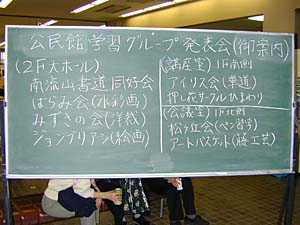 公民館学習グループ発表会(御案内)
(2F大ホール)
南流山書道同好会
はらみ会(水彩画)
みずきの会(洋裁)
ジョンブリアン(絵画)
(講座室) 1F南側
アイリス会(華道)
押し花サークルひまわり
(会議室) 1F北側
松ヶ丘会(ペン習字)
アートバスケット(籐工芸)